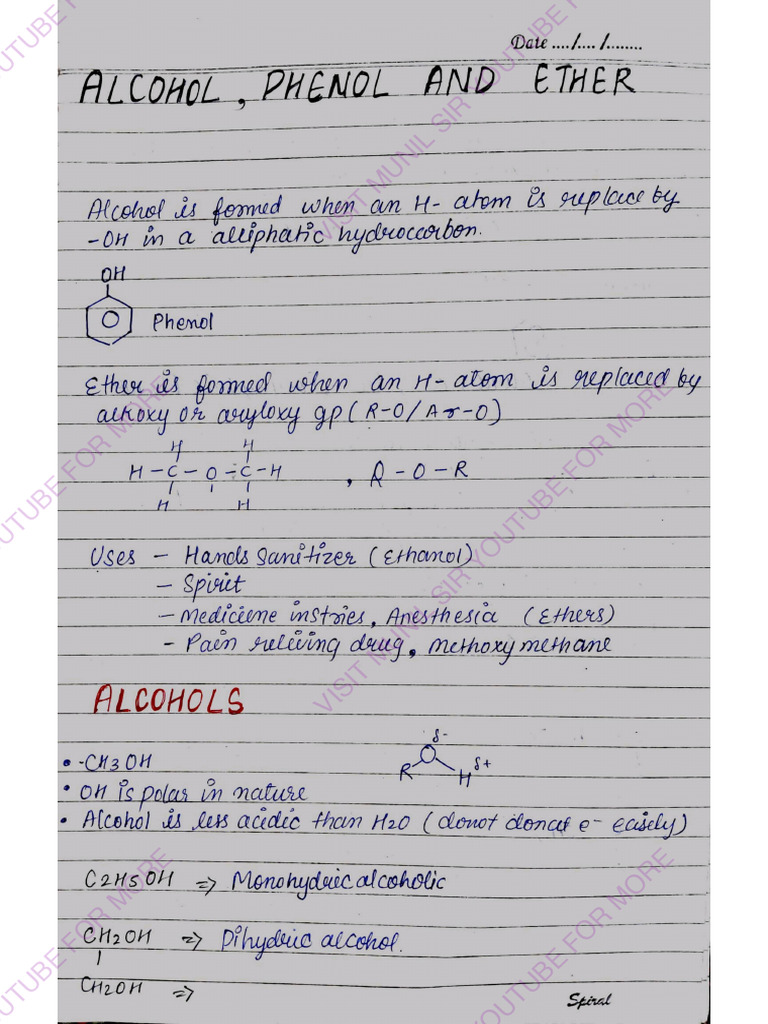 Date ..../..../........
ALCOHOL, PHENOL AND ETHER
Alcohol is formed when an H- atom is replace by
-OH in a alliphatic hydroccorbon.
OH
Phenol
Ether is formed when an H-atom is replaced by
alkoxy or aryloxy gp (R-O/Ar-O)
H H
H - C - O - C - H , R - O - R
H H
Uses - Hands Sanitizer (Ethanol)
- Spirit
- Mediciene instries, Anesthesia (Ethers)
- Pain reliving drug, methoxy methane
ALCOHOLS
δ-
• -CH3OH
O
R H δ+
• OH is polar in nature
• Alcohol is less acidic than H2O (donot donat e- easily)
C2H5OH => Monohydric alcoholic
CH2OH => Dihydric alcohol.
CH2OH =>
Spiral
VISIT MUNIL SIR YOUTUBE FOR MORE
VISIT MUNIL SIR YOUTUBE FOR MORE
YOUTUBE FOR MORE
YOUTUBE FOR MORE